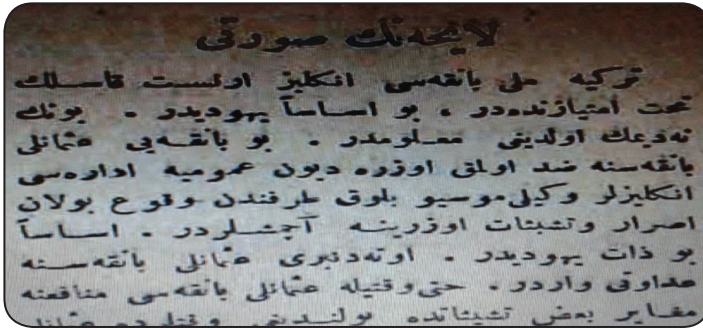 لايحه‌نك صورتى
توركيه ملى بانقه‌سى انكليز ارنست قاسلك
تحت امتيازنده‌در ، بو اساساً يهوديدر . بونك
نه‌ديمك اولديغى معلومدر . بو بانقه‌يى عثمانلى
بانقه‌سنه ضد اولمق اوزره ديون عموميه اداره‌سى
انكليزلر وكيلى موسيو بلوق طرفندن وقوع بولان
اصرار وتشبثات اوزرينه آچمشلردر . اساساً
بو ذات يهوديدر . اوته‌دنبرى عثمانلى بانقه‌سنه
عداوتى واردر . حتى وقتيله عثمانلى بانقه‌سى منافعنه
مغاير بعض تشبثاتده بولنديغى